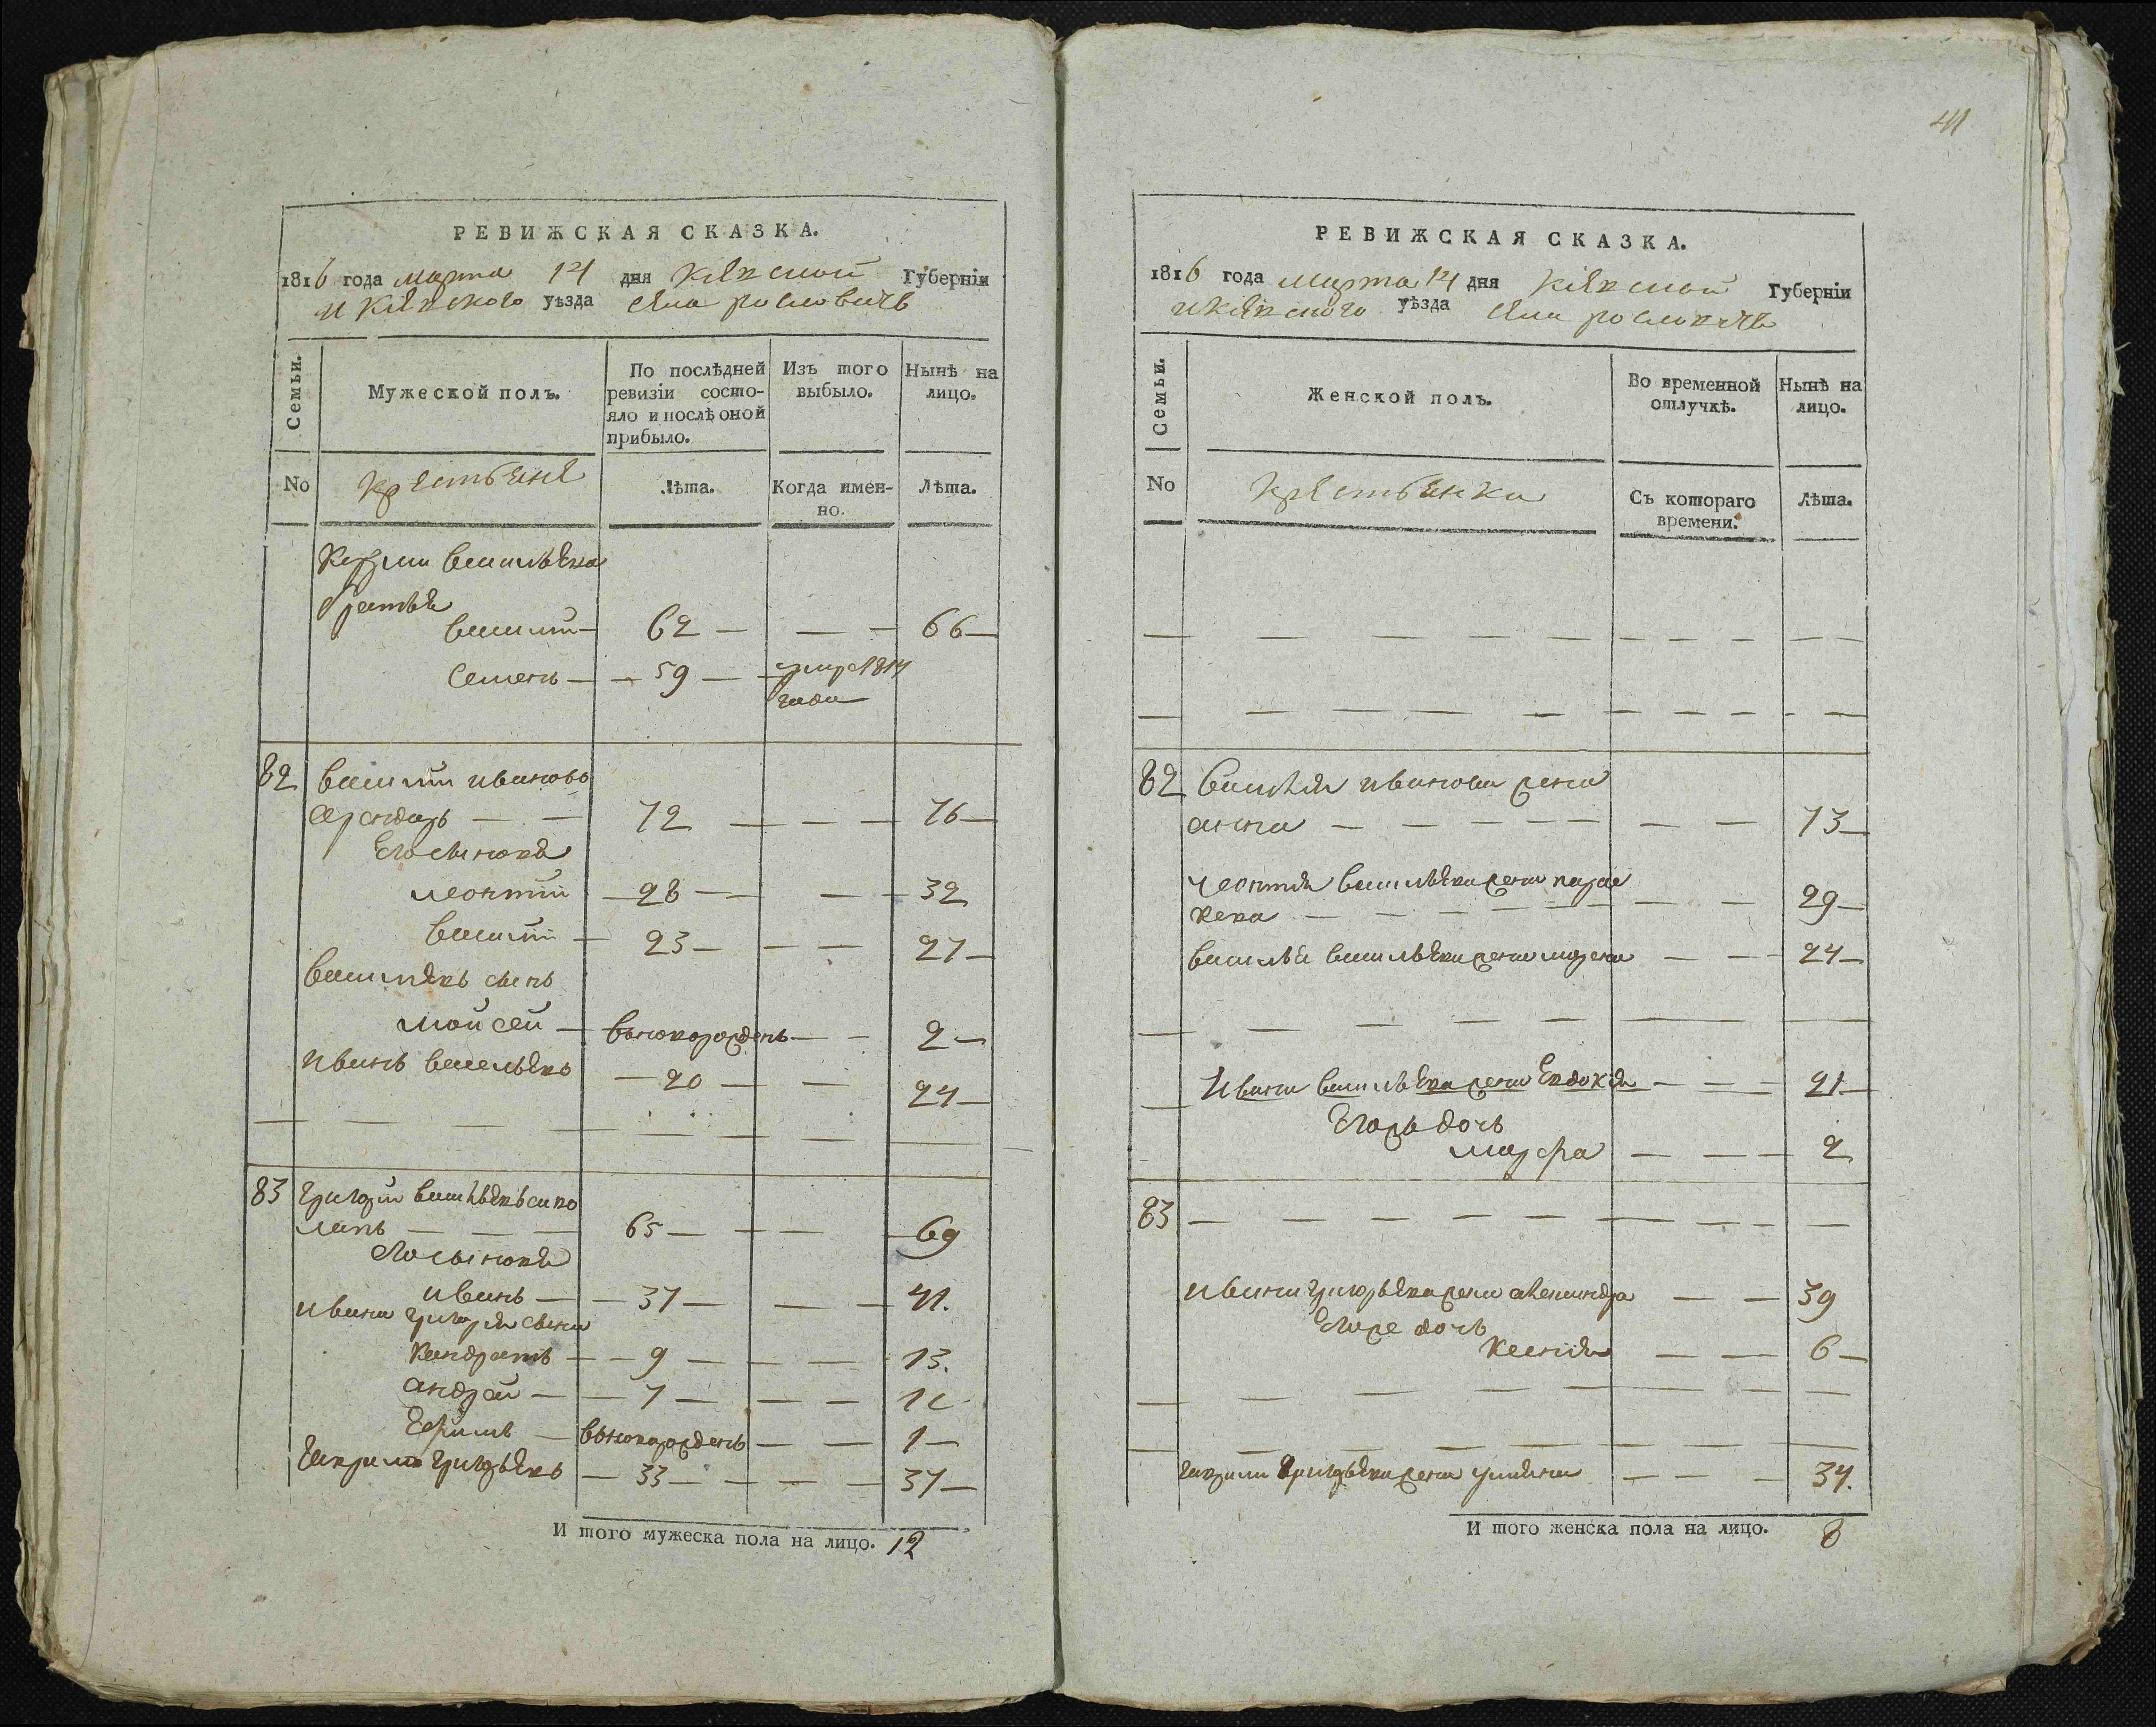 41
РЕВИЖСКАЯ СКАЗКА.
1816 года марта 14 дня Кіевской Губерніи
и Кіевского уѣзда села
Семьи.
Мужеской полъ.
По послѣдней ревизіи состо-
яло и послѣ оной
прибыло.
Изъ того
выбыло.
Нынѣ на
лицо.
No
крестьяне
Лѣта.
Когда имен-
но.
Лѣта.
Васильева
братья
василий — 62 — — — 66 —
Семенъ — — 59 — 1814
года
82 василий ивановъ
— — 72 — — — 76 —
Его сыновья
леонтий — 28 — — — 32
василий — 23 — — — 27 —
васильевъ сынъ
мойсей — вноворожденъ — — 2 —
иванъ васильевъ — 20 — — 24 —
83 григорий васильевъ
— — — 65 — — — 69
Его сыновья
иванъ — — 37 — — — 41.
ивана григорія сыны
кандратъ — — 9 — — — 13.
андрей — — 7 — — — 11
Ефимъ — вновorожденъ — — 1 —
гаврило григорьевъ — 33 — — — 37 —
И того мужеска пола на лицо. 12
РЕВИЖСКАЯ СКАЗКА.
1816 года марта 14 дня Кіевской Губерніи
и Кіевского уѣзда села
Семьи.
Женской полъ.
Во временной
отлучкѣ.
Нынѣ на
лицо.
No
крестьянки
Съ котораго
времени.
Лѣта.
82 василія иванова жена
анна — — — — — — 73 —
леонтія васильева жена парас
кева — — — — — — 29 —
василья васильева жена — — 24 —
Ивана васильева жена Евдокія — — — 21 —
Егорь дочь
марфа — — — 2
83 — — — — — — — — —
ивана григорьева жена александра — — 39
Егоре дочь
ксенія — — 6 —
гаврили григорьева жена уляна — — — 34.
И того женска пола на лицо. 8